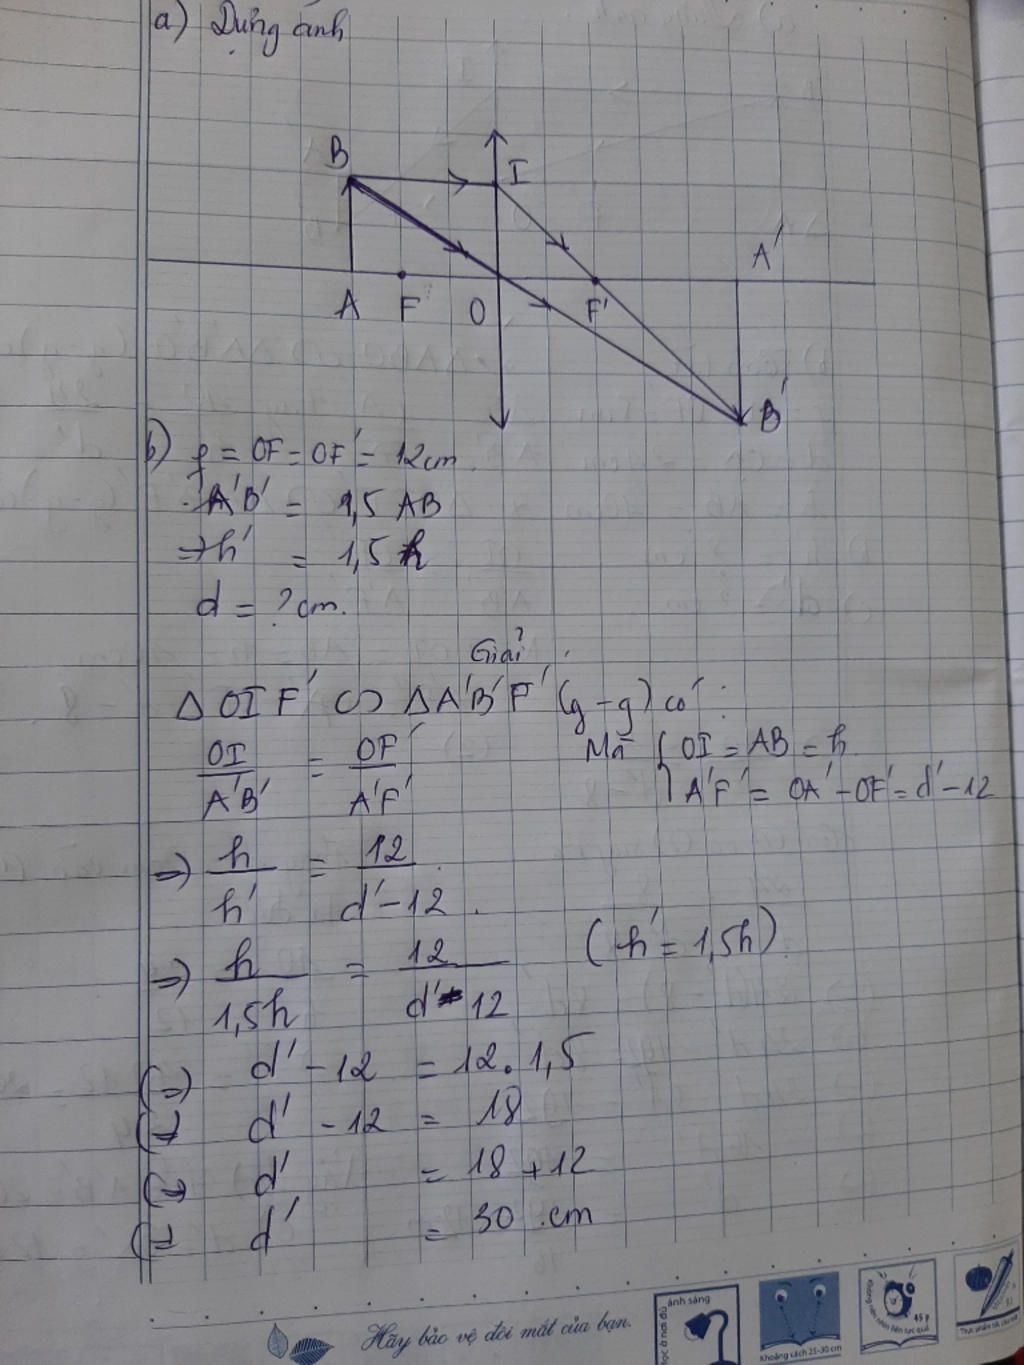 a) Dựng ảnh
B
I
A'
A F O F'
B'
b) f = OF = OF' = 12cm.
A'B' = 1,5 AB
=> h' = 1,5 h
d = ? cm.
Giải
Δ OIF' ∽ Δ A'B'F' (g-g) có:
OI/A'B' = OF'/A'F' Mà { OI = AB = h
A'F' = OA' - OF' = d' - 12
=> h/h' = 12/d'-12.
=> h/1,5h = 12/d'-12 (h' = 1,5h)
(=) d' - 12 = 12.1,5
(=) d' - 12 = 18
(=) d' = 18 + 12
(=) d' = 30 cm
Hãy bảo vệ đôi mắt của bạn.
ánh sáng
Học ở nơi đủ
Khoảng cách 25-30 cm
45 p